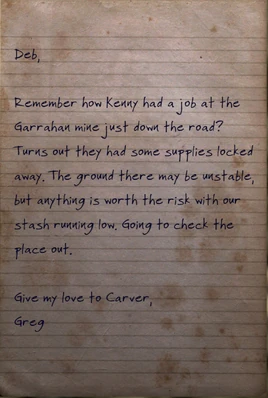 Deb,
Remember how Kenny had a job at the
Garrahan mine just down the road?
Turns out they had some supplies locked
away. The ground there may be unstable,
but anything is worth the risk with our
stash running low. Going to check the
place out.
Give my love to Carver,
Greg